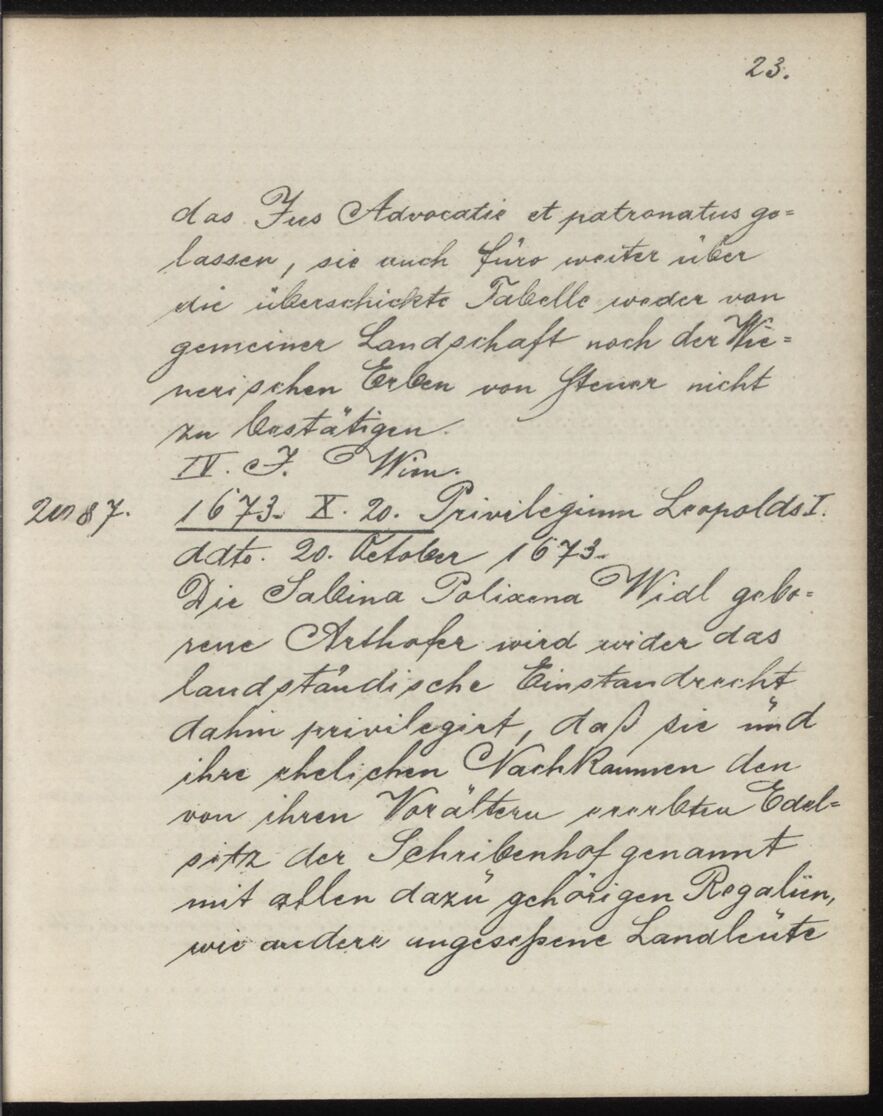 23.
das Jus Advocatie et patronatus ge=
lassen, sie auch füro weiter über
die überschickte Tabelle weder von
gemeiner Landschaft noch der Wie=
nerischen Erben von Steuer nicht
zu bestätigen.
IV. J. Wien.
87. 1673. X. 20. Privilegium Leopolds I.
ddto. 20. October 1673.
Die Sabina Polixena Widl gebo=
rene Arthofer wird wider das
landständische Einstandrecht
dahin privilegirt, daß sie und
ihre ehelichen Nachkommen den
von ihren Vorältern ererbten Edel=
sitz der Schribenhof genannt
mit allen dazu gehörigen Regalien,
wie andere angeseßene Landleute